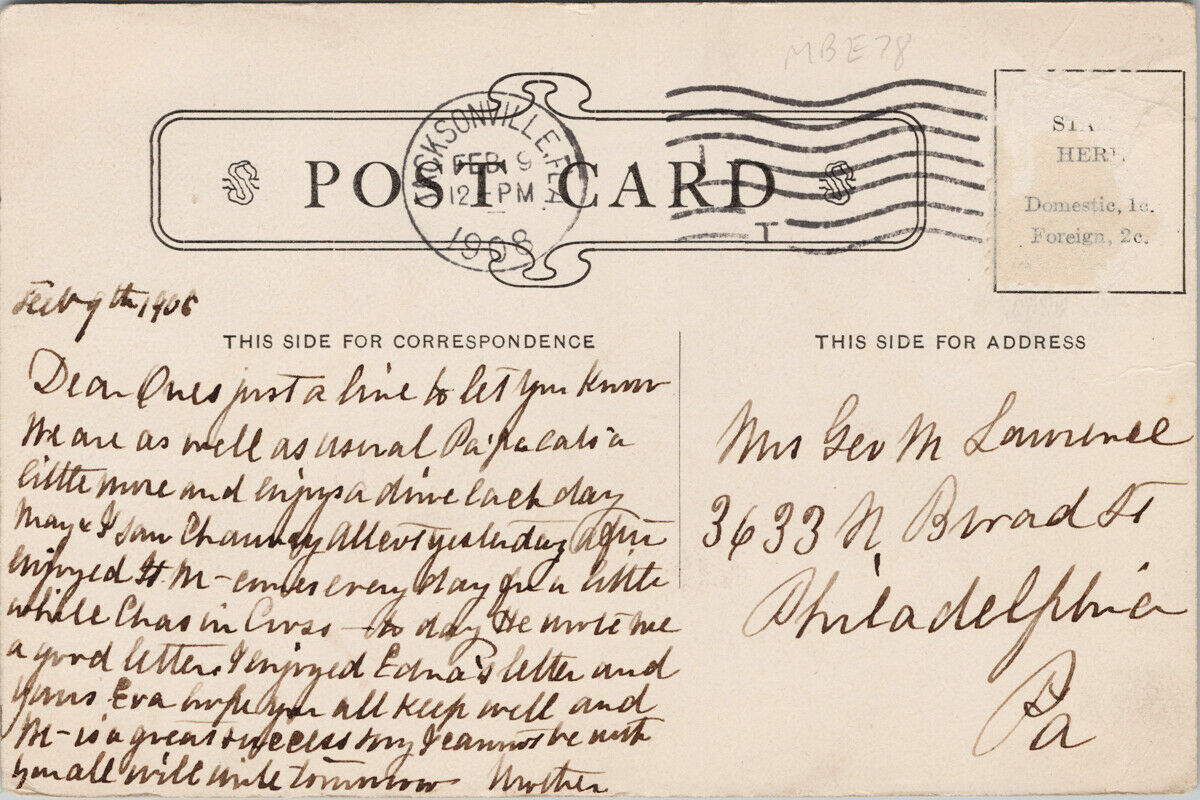 MBE78
JACKSONVILLE, FLA.
FEB 9
12 - PM
1908
POST CARD
STA
HERE.
Domestic, 1c.
Foreign, 2c.
Feb 9th 1908
THIS SIDE FOR CORRESPONDENCE
THIS SIDE FOR ADDRESS
Dear Ones just a line to let you know
We are as well as usual Papa eats a
little more and enjoys a drive each day
May & I saw Chauncey Alcott yesterday
enjoyed it M- comes every day for a little
while Chas in - to day He wrote me
a good letter. I enjoyed Edna's letter and
yours Eva hope you all keep well and
M- is a great success sorry I cannot be with
you all will write tommorow Mother
Mrs Geo M Lawrence
3633 N. Broad St
Philadelphia
Pa